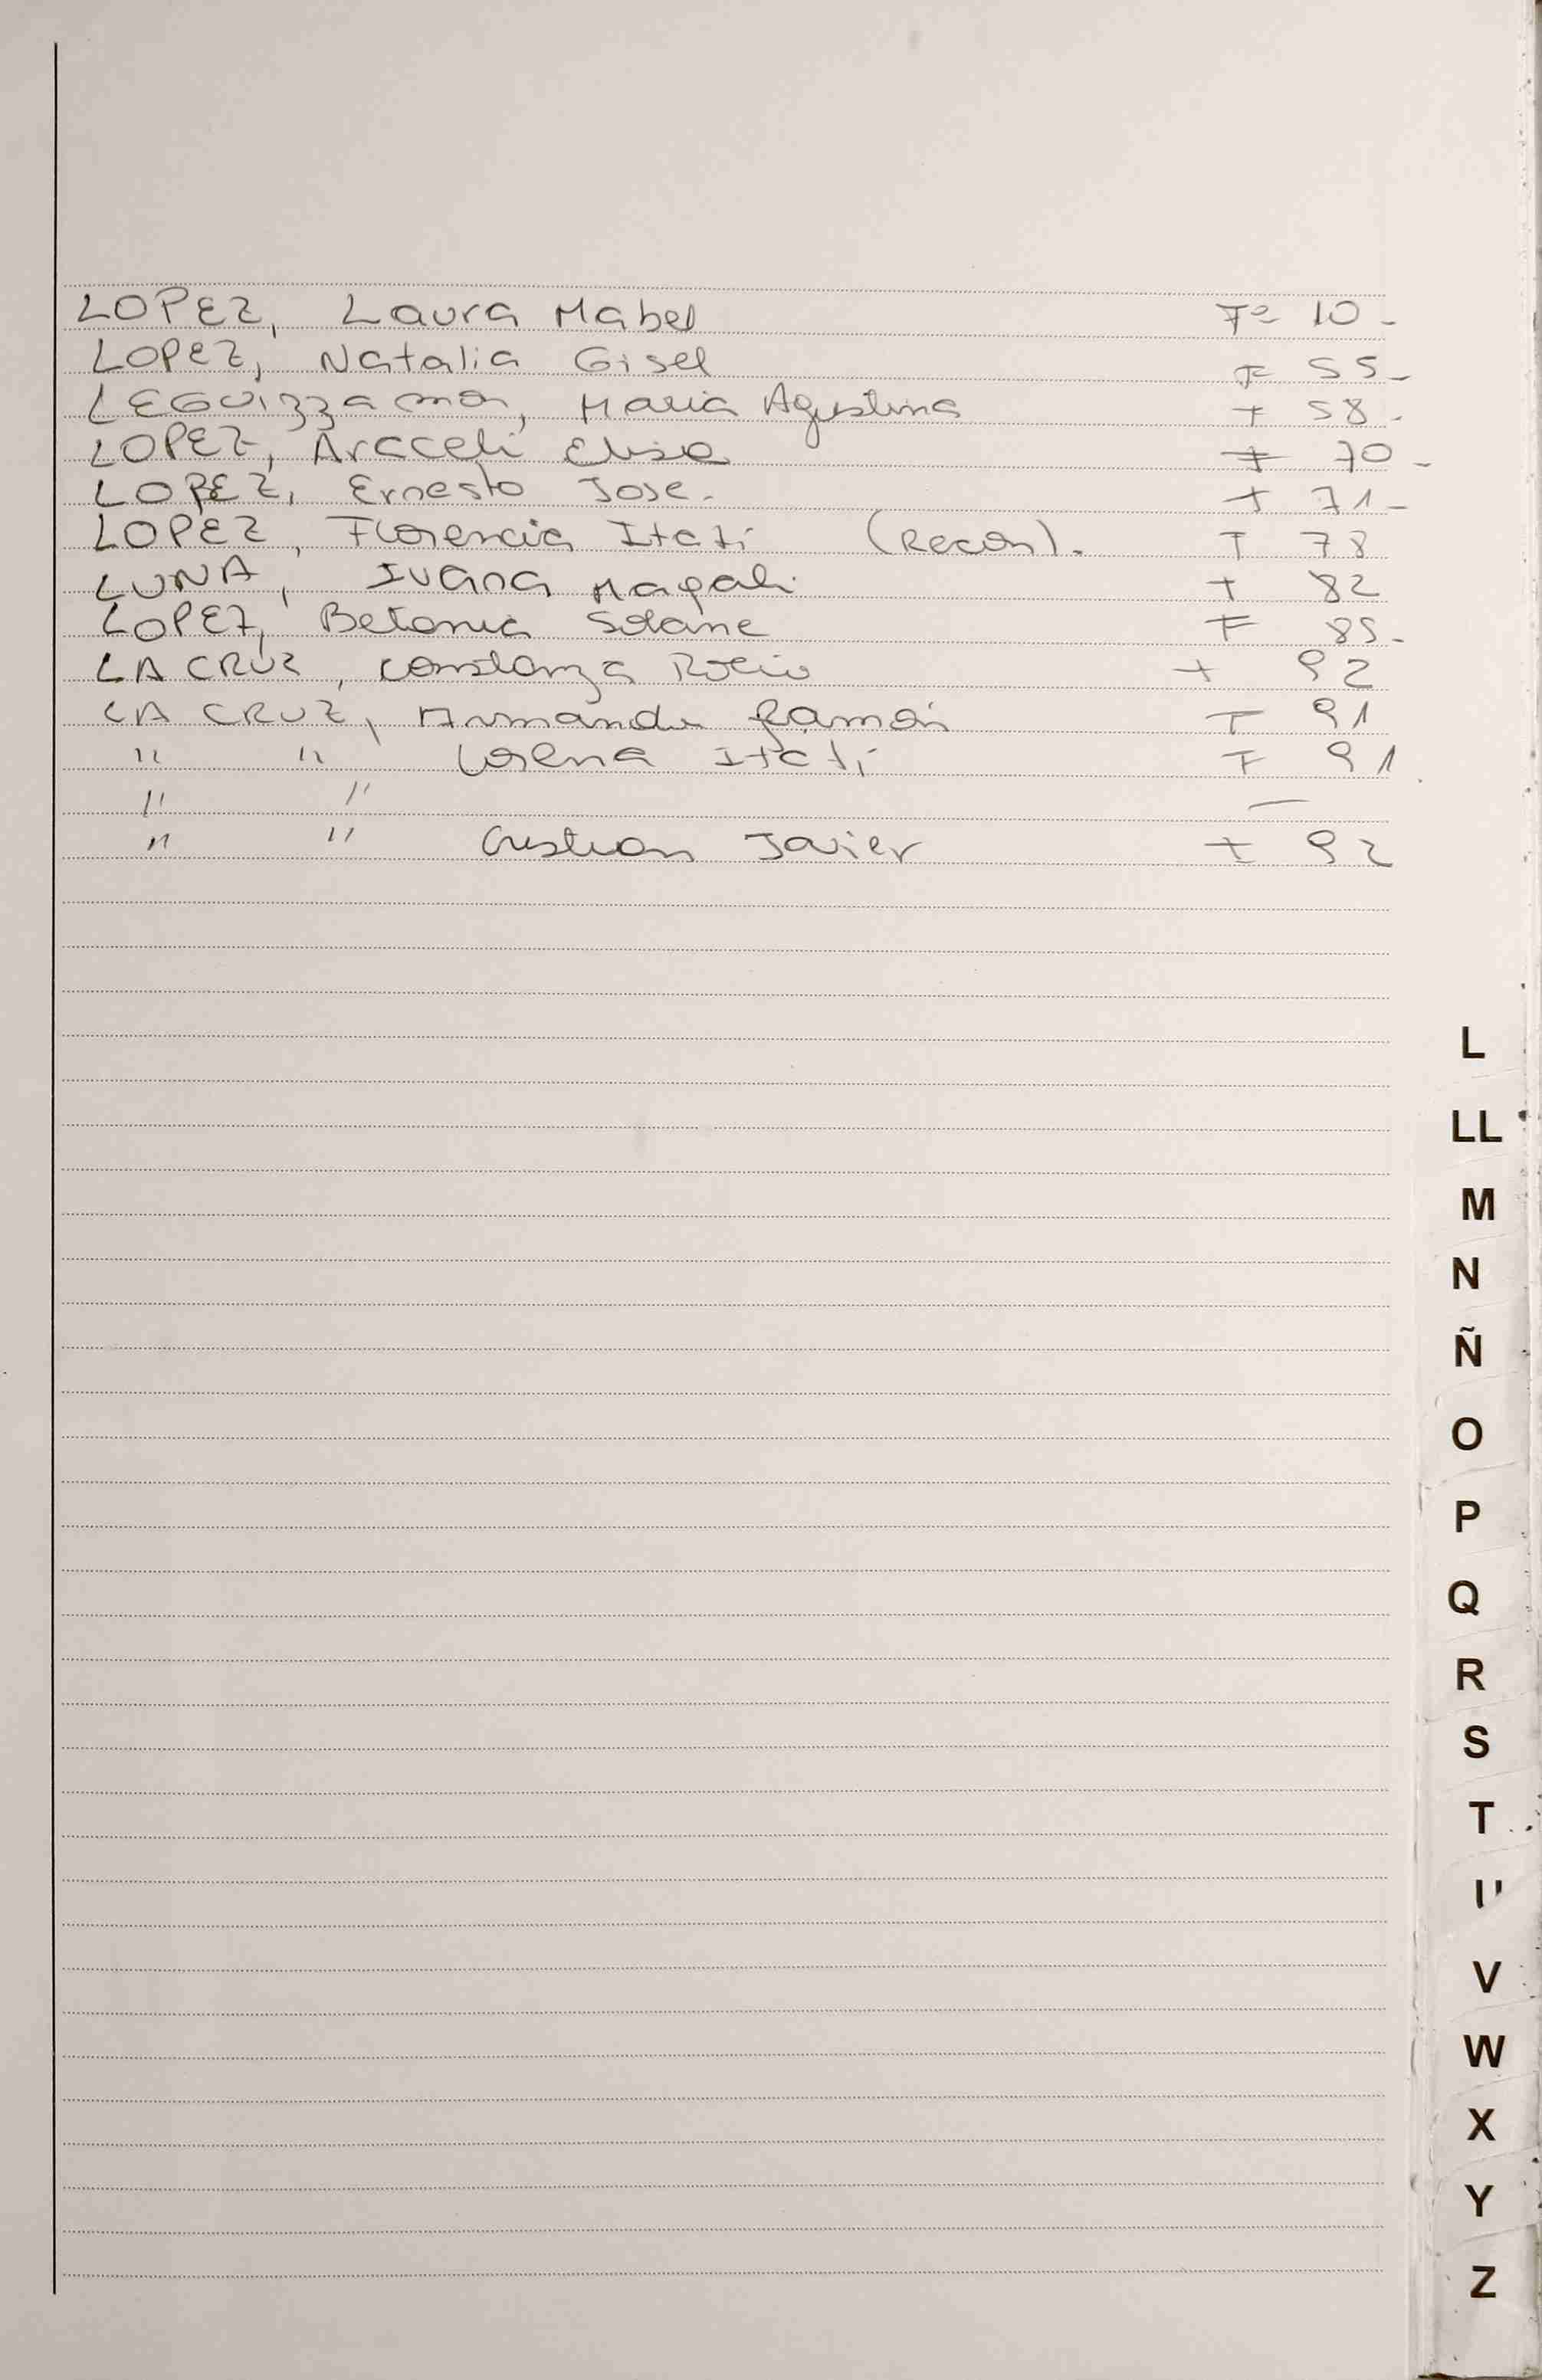 LOPEZ, Laura Mabel Fº 10 -
LOPEZ, Natalia Gisel F 55 -
LEGUIZZAMON, Maria Agustina F 58 -
LOPEZ, Araceli Elisa F 70 -
LOPEZ, Ernesto Jose. F 71 -
LOPEZ, Florencia Itati (Recon). F 78
LUNA, Ivana Magali F 82
LOPEZ, Betania Solane F 85 -
LA CRUZ, Constanza Rocio F 92
LA CRUZ, Armando Ramón F 91
" " Lorena Itati F 91
" " —
" " Cristian Javier F 92
L
LL
M
N
Ñ
O
P
Q
R
S
T
U
V
W
X
Y
Z